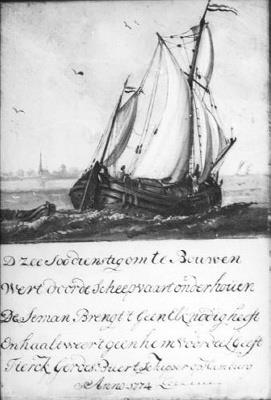 D zee Soo dienstig om te Bouwen
Wert door de Scheepvaart onderhouwen
De Seman Brengt 't Geen Elk nodig heeft
En haalt weer t geen hem Voordeel Geeft
Tierck Gerdes Buert Schipper op
Anno 1774